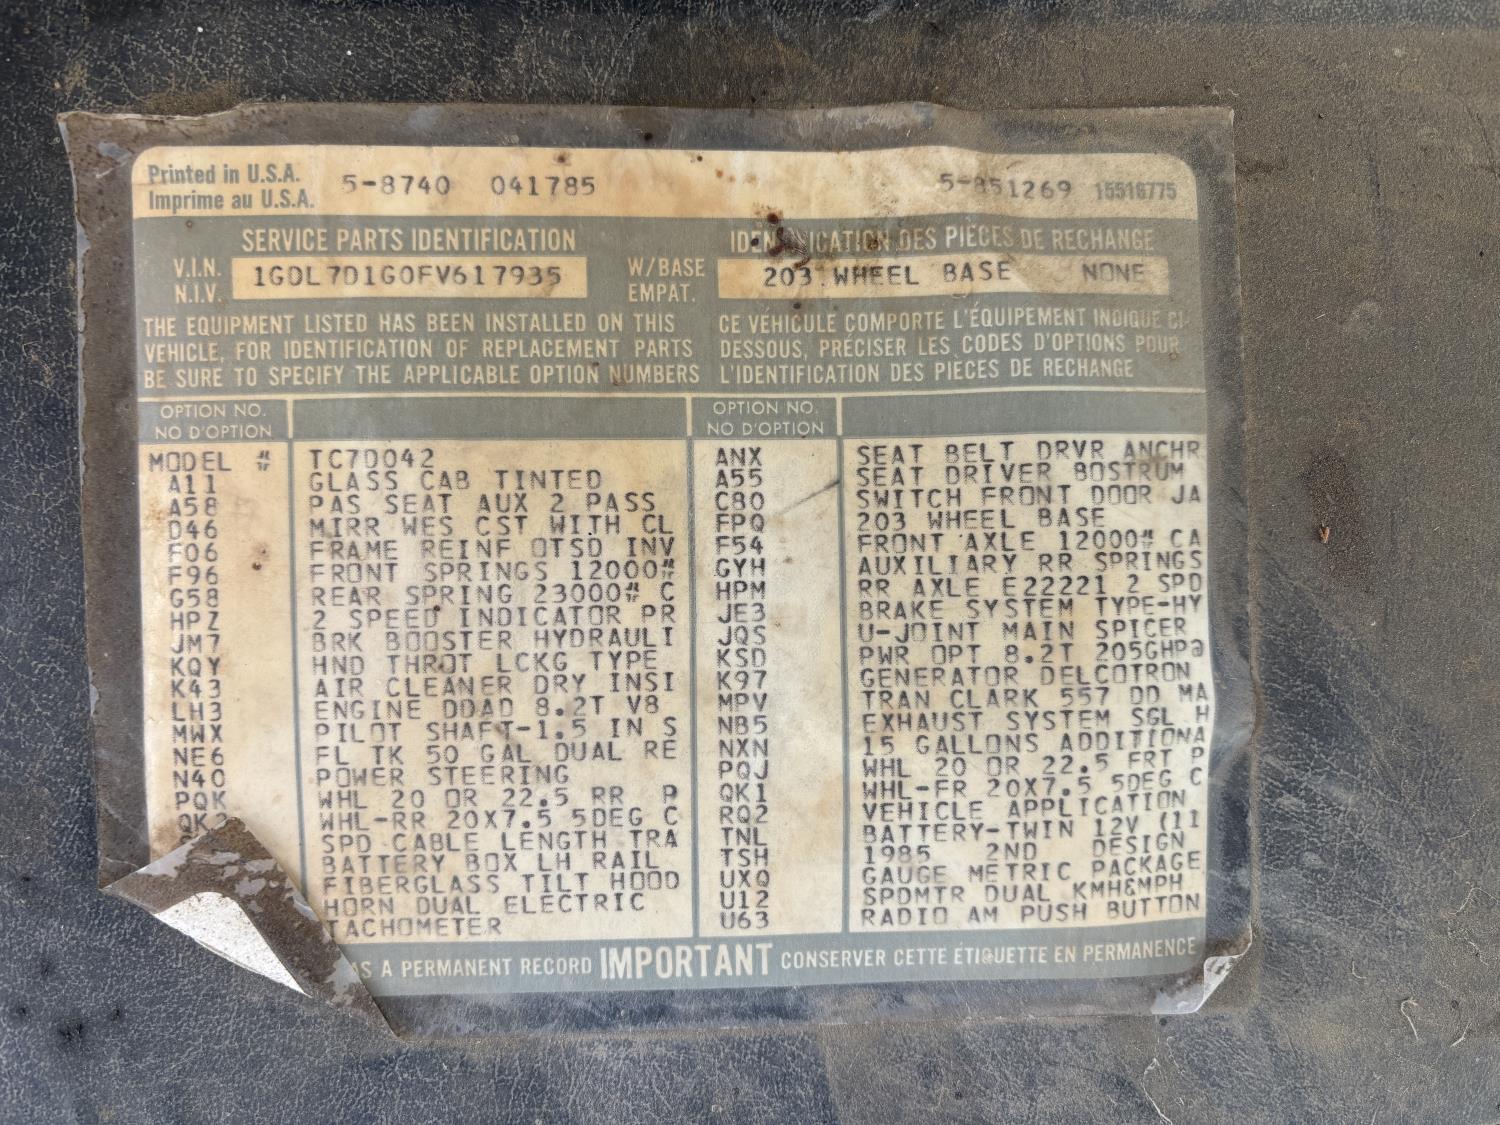 Printed in U.S.A. 5-8740 041785 5-851269 15516775
Imprime au U.S.A.
SERVICE PARTS IDENTIFICATION IDENTIFICATION DES PIÈCES DE RECHANGE
V.I.N. 1GDL7D1G0FV617935 W/BASE 203 WHEEL BASE NONE
N.I.V. EMPAT.
THE EQUIPMENT LISTED HAS BEEN INSTALLED ON THIS
VEHICLE, FOR IDENTIFICATION OF REPLACEMENT PARTS
BE SURE TO SPECIFY THE APPLICABLE OPTION NUMBERS
CE VÉHICULE COMPORTE L'ÉQUIPEMENT INDIQUE CI-
DESSOUS, PRÉCISER LES CODES D'OPTIONS POUR
L'IDENTIFICATION DES PIÈCES DE RECHANGE
OPTION NO.
NO D'OPTION
MODEL # TC7D042
A11 GLASS CAB TINTED
A58 PAS SEAT AUX 2 PASS
D46 MIRR WES CST WITH CL
F06 FRAME REINF OTSD INV
F96 FRONT SPRINGS 12000#
G58 REAR SPRING 23000# C
HPZ 2 SPEED INDICATOR PR
JM7 BRK BOOSTER HYDRAULI
KQY HND THROT LCKG TYPE
K43 AIR CLEANER DRY INSI
LH3 ENGINE DDAD 8.2T V8
MWX PILOT SHAFT-1.5 IN S
NE6 FL TK 50 GAL DUAL RE
N40 POWER STEERING
PQK WHL 20 OR 22.5 RR P
QK2 WHL-RR 20X7.5 5DEG C
SPD CABLE LENGTH TRA
BATTERY BOX LH RAIL
FIBERGLASS TILT HOOD
HORN DUAL ELECTRIC
TACHOMETER
OPTION NO.
NO D'OPTION
ANX SEAT BELT DRVR ANCHR
A55 SEAT DRIVER BOSTRUM
C80 SWITCH FRONT DOOR JA
FPQ 203 WHEEL BASE
F54 FRONT AXLE 12000# CA
GYH AUXILIARY RR SPRINGS
HPM RR AXLE E22221 2 SPD
JE3 BRAKE SYSTEM TYPE-HY
JQS U-JOINT MAIN SPICER
KSD PWR OPT 8.2T 205GHP@
K97 GENERATOR DELCOTRON
MPV TRAN CLARK 557 DD MA
NB5 EXHAUST SYSTEM SGL H
NXN 15 GALLONS ADDITIONA
PQJ WHL 20 OR 22.5 FRT P
QK1 WHL-FR 20X7.5 5DEG C
RQ2 VEHICLE APPLICATION
TNL BATTERY-TWIN 12V (11
TSH 1985 2ND DESIGN
UXQ GAUGE METRIC PACKAGE
U12 SPDMTR DUAL KMH&MPH
U63 RADIO AM PUSH BUTTON
AS A PERMANENT RECORD IMPORTANT CONSERVER CETTE ÉTIQUETTE EN PERMANENCE